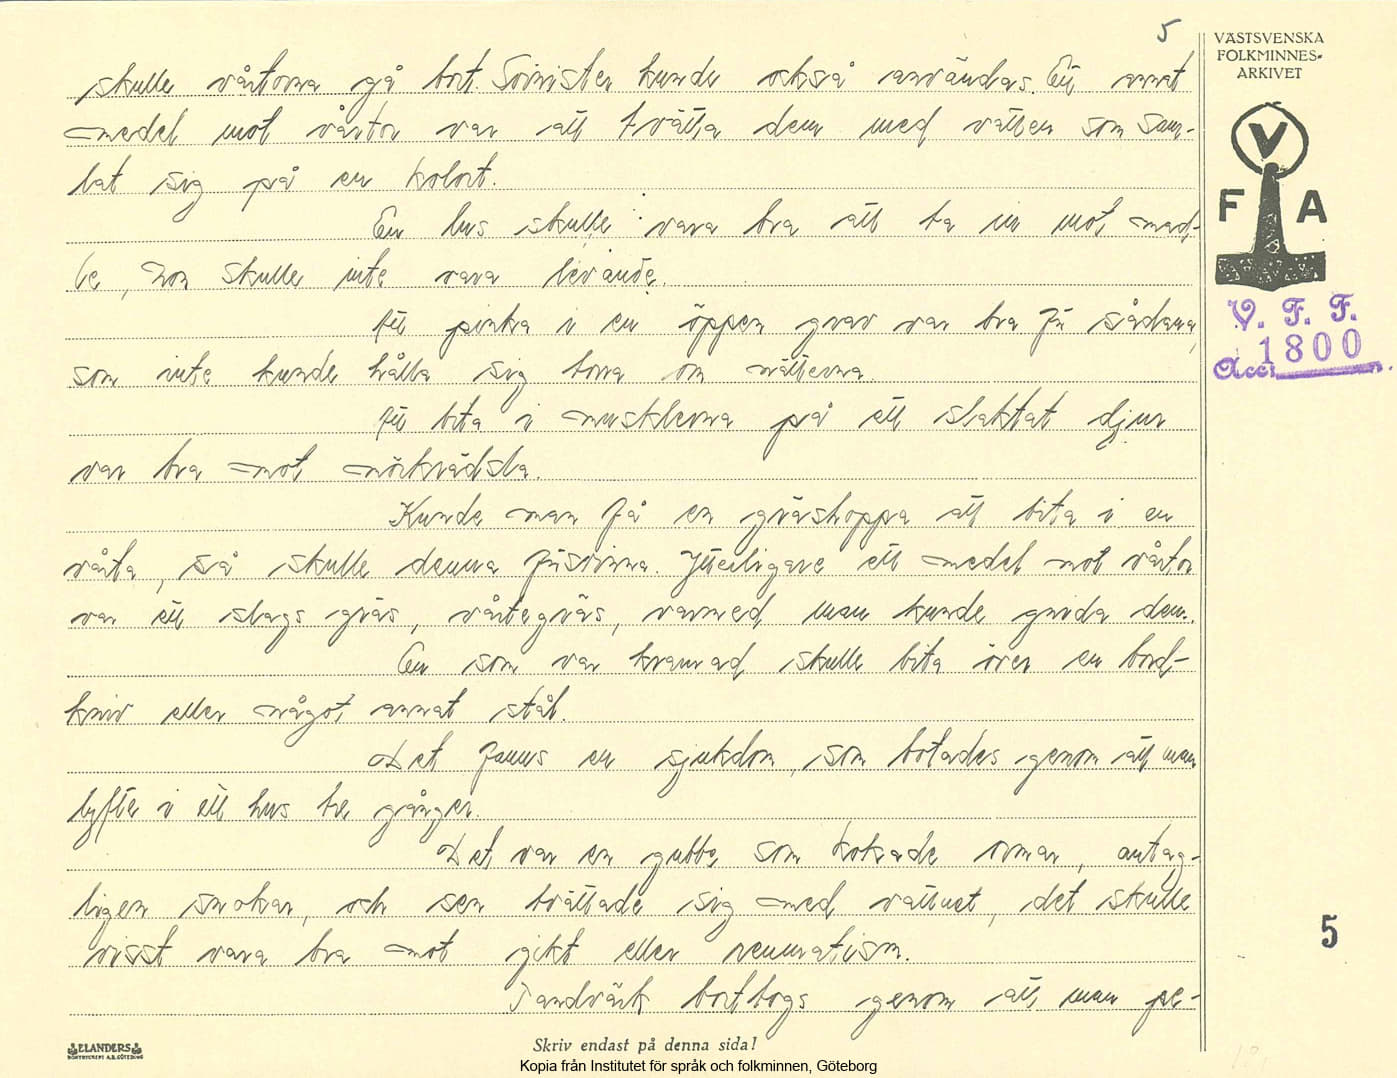 5
VÄSTSVENSKA
FOLKMINNES-
ARKIVET
V
F A
V. F. F.
Acc. 1800
skulle vårtorna gå bort. Svinister kunde också användas. Ett annat
medel mot vårtor var att tvätta dem med vatten som sam-
lat sig på en kolort.
En lus skulle vara bra att ta in mot mad-
be, hon skulle inte vara levande.
Att pinka i en öppen grav var bra för sådana,
som inte kunde hålla sig torra om nätterna.
Att bita i musklerna på ett slaktat djur
var bra mot mörkrädsla.
Kunde man få en gräshoppa att bita i en
vårta, så skulle denna försvinna. Ytterligare ett medel mot vårtor
var ett slags gräs, vårtegräs, varmed man kunde gnida dem.
En som var skulle bita över en bord-
kniv eller något annat stål.
Det fanns en sjukdom, som botades genom att man
lyfte i ett hus tre gånger.
Det var en gubbe som kokade ormar, antag-
ligen snokar, och sen tvättade sig med vattnet, det skulle
visst vara bra mot gikt eller reumatism.
Tandvärk borttogs genom att man pe-
5
ELANDERS
BOKTRYCKERI A.B. GÖTEBORG
Skriv endast på denna sida!
Kopia från Institutet för språk och folkminnen, Göteborg